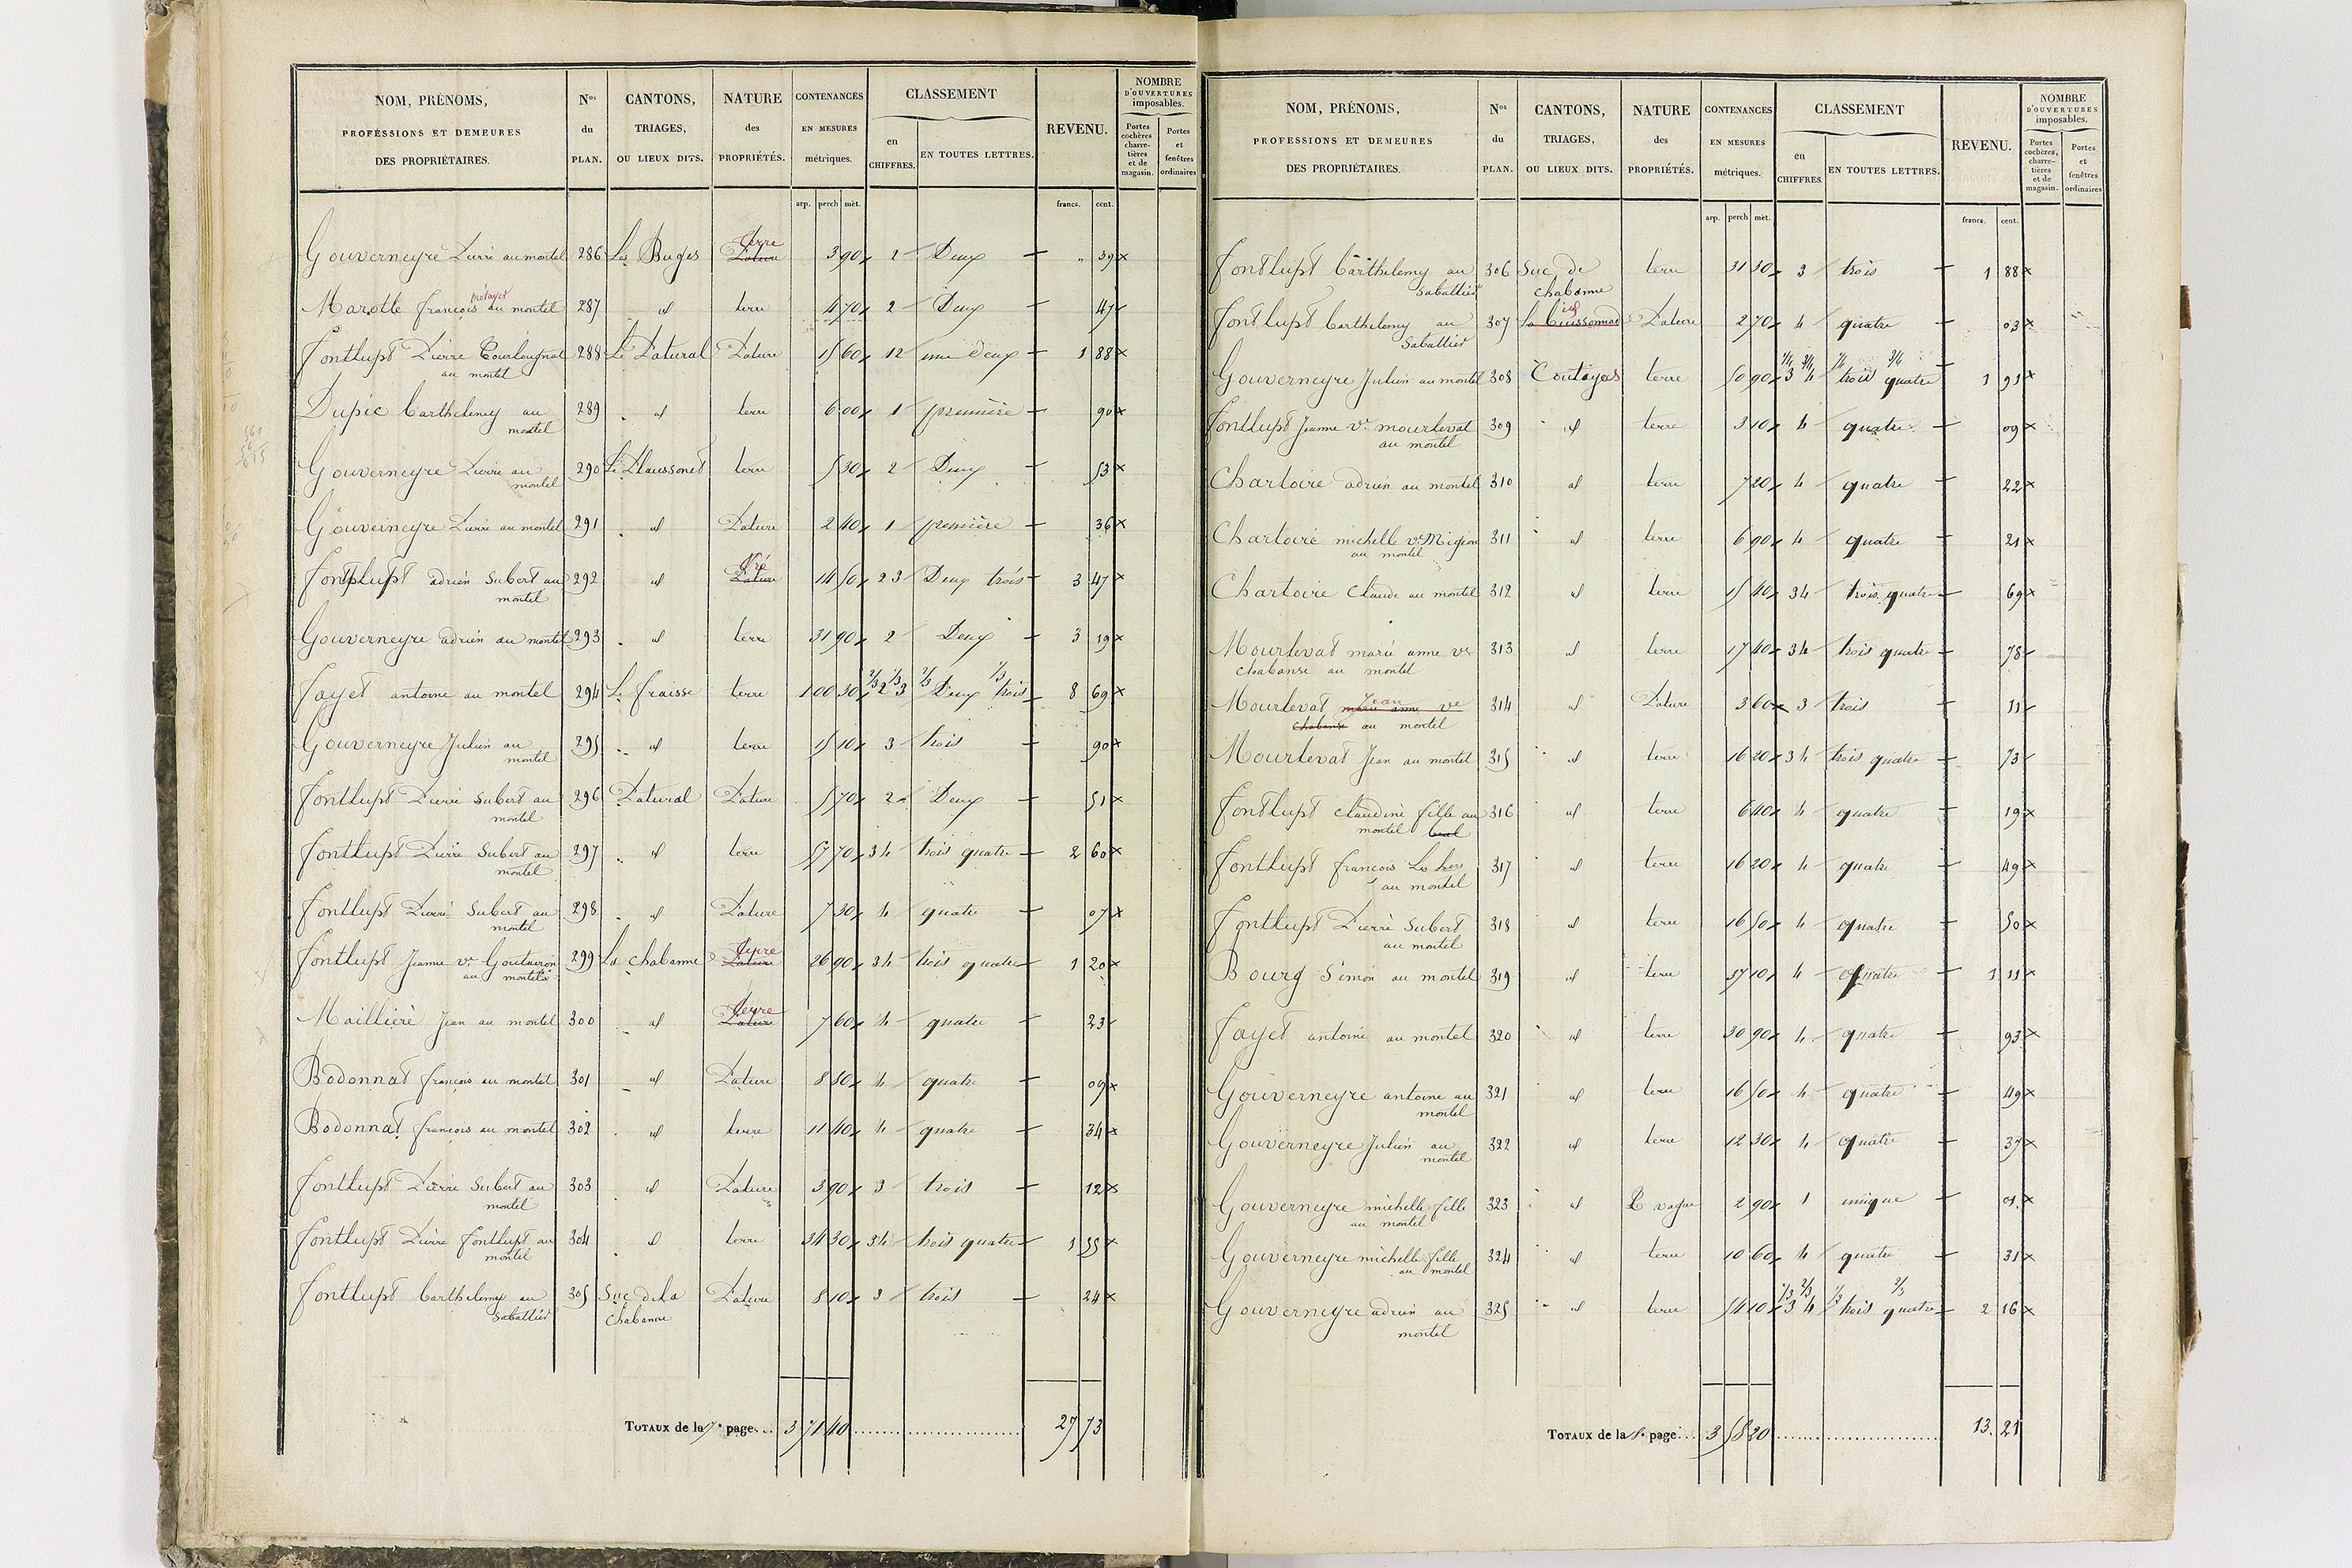 NOM, PRÉNOMS, PROFESSIONS ET DEMEURES DES PROPRIÉTAIRES. Nos du PLAN. CANTONS, TRIAGES, OU LIEUX DITS. NATURE des PROPRIÉTÉS. CONTENANCES EN MESURES métriques. CLASSEMENT en CHIFFRES. EN TOUTES LETTRES. REVENU. NOMBRE D'OUVERTURES imposables. Portes cochères charretières et de magasin. Portes et fenêtres ordinaires
arp. perch mèt. francs. cent.
Gouverneyre Pierre au montel 286 Les Buges Terre Pature 3 90 2 Deux " 39
Marotte françois métayer au montel 287 id terre 4 70 2 Deux 47
fontlupt Pierre Courtougnat au montel 288 Le Patural Pature 15 60 12 une deux 1 88
Dupic Barthelemy au montel 289 id terre 6 00 1 première 90
Gouverneyre Pierre au montel 290 terre 5 30 2 Deux 53
Gouverneyre Pierre au montel 291 id Pature 2 40 1 première 36
fontplupt adrien Subert au montel 292 id Pré Pature 14 50 2 3 Deux trois 3 47
Gouverneyre adrien au montel 293 id terre 31 90 2 Deux 3 19
fayet antoine au montel 294 Le fraisse terre 1 00 30 2/3 2 1/3 3 2/3 Deux 1/3 trois 8 69
Gouverneyre Julien au montel 295 id terre 15 10 3 trois 90
fontlupt Pierre Subert au montel 296 Patural Pature 5 70 2 Deux 51
fontlupt Pierre Subert au montel 297 id terre 57 70 3 4 trois quatre 2 60
fontlupt Pierre Subert au montel 298 id Pature 7 30 4 quatre 07
fontlupt Jeanne ve Goutairon au montel 299 La chabanne Terre Pature 26 90 3 4 trois quatre 1 20
Maillière Jean au montel 300 id Terre Pature 7 60 4 quatre 23
Bodonnat françois au montel 301 id Pature 8 80 4 quatre 09
Bodonnat françois au montel 302 id terre 11 40 4 quatre 34
fontlupt Pierre Subert au montel 303 id Pature 3 90 3 trois 12
fontlupt Pierre fontlupt au montel 304 id terre 34 30 3 4 trois quatre 1 55
fontlupt barthelemy au Sabattier 305 Suc de la Chabanne Pature 8 10 3 trois 24
TOTAUX de la 7e page 3 71 40 27 73
NOM, PRÉNOMS, PROFESSIONS ET DEMEURES DES PROPRIÉTAIRES. Nos du PLAN. CANTONS, TRIAGES, OU LIEUX DITS. NATURE des PROPRIÉTÉS. CONTENANCES EN MESURES métriques. CLASSEMENT en CHIFFRES. EN TOUTES LETTRES. REVENU. NOMBRE D'OUVERTURES imposables. Portes cochères, charretières et de magasin. Portes et fenêtres ordinaires
arp. perch mèt. francs. cent.
fontlupt barthelemy au Sabattier 306 Suc de chabanne terre 31 30 3 trois 1 88
fontlupt barthelemy au Sabattier 307 id Pature 2 70 4 quatre 03
Gouverneyre Julien au montel 308 Coutayas terre 50 90 1/4 3 3/4 4 1/4 trois 3/4 quatre 1 91
fontlupt Jeanne ve mourlevat au montel 309 id terre 3 10 4 quatre 09
Chartoire adrien au montel 310 id terre 7 20 4 quatre 22
Chartoire michelle ve Migeon au montel 311 id terre 6 90 4 quatre 21
Chartoire Claude au montel 312 id terre 15 40 3 4 trois quatre 69
Mourlevat marie anne ve chabanse au montel 313 id terre 17 40 3 4 trois quatre 78
Mourlevat Jean marie anne ve chabanse au montel 314 id Pature 3 60 3 trois 11
Mourlevat Jean au montel 315 id terre 16 20 3 4 trois quatre 73
fontlupt claudine fille au montel 316 id terre 6 40 4 quatre 19
fontlupt francois Les hers au montel 317 id terre 16 20 4 quatre 49
fontlupt Pierre Subert au montel 318 id terre 16 50 4 quatre 50
Bourg Simon au montel 319 id terre 37 10 4 quatre 1 11
fayet antoine au montel 320 id terre 30 90 4 quatre 93
Gouverneyre antoine au montel 321 id terre 16 50 4 quatre 49
Gouverneyre Julien au montel 322 id terre 12 30 4 quatre 37
Gouverneyre michelle fille au montel 323 id P vague 2 90 1 unique 01
Gouverneyre michelle fille au montel 324 id terre 10 60 4 quatre 31
Gouverneyre adrien au montel 325 id terre 54 10 1/3 3 2/3 4 1/3 trois 2/3 quatre 2 16
TOTAUX de la 8e page 3 58 20 13. 21